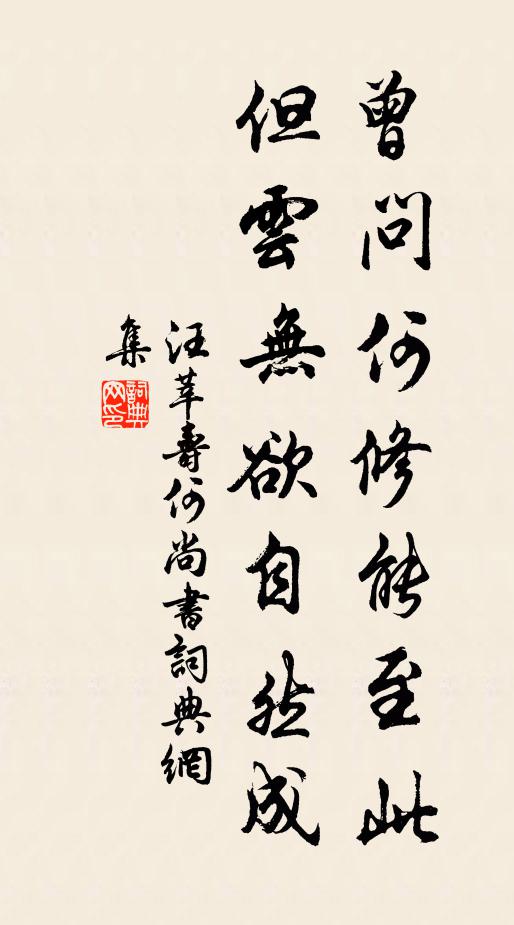 曾問何修能至此
但雲無欲自然成
汪莘壽何尚書詞典網
集
詞典网印